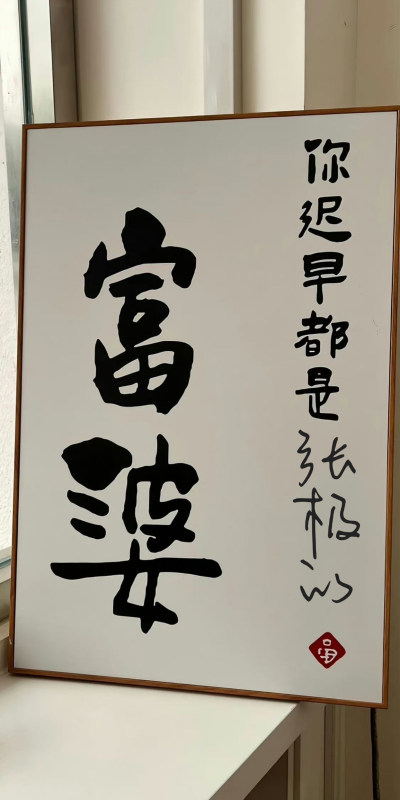 你迟早都是张极的
富婆
富